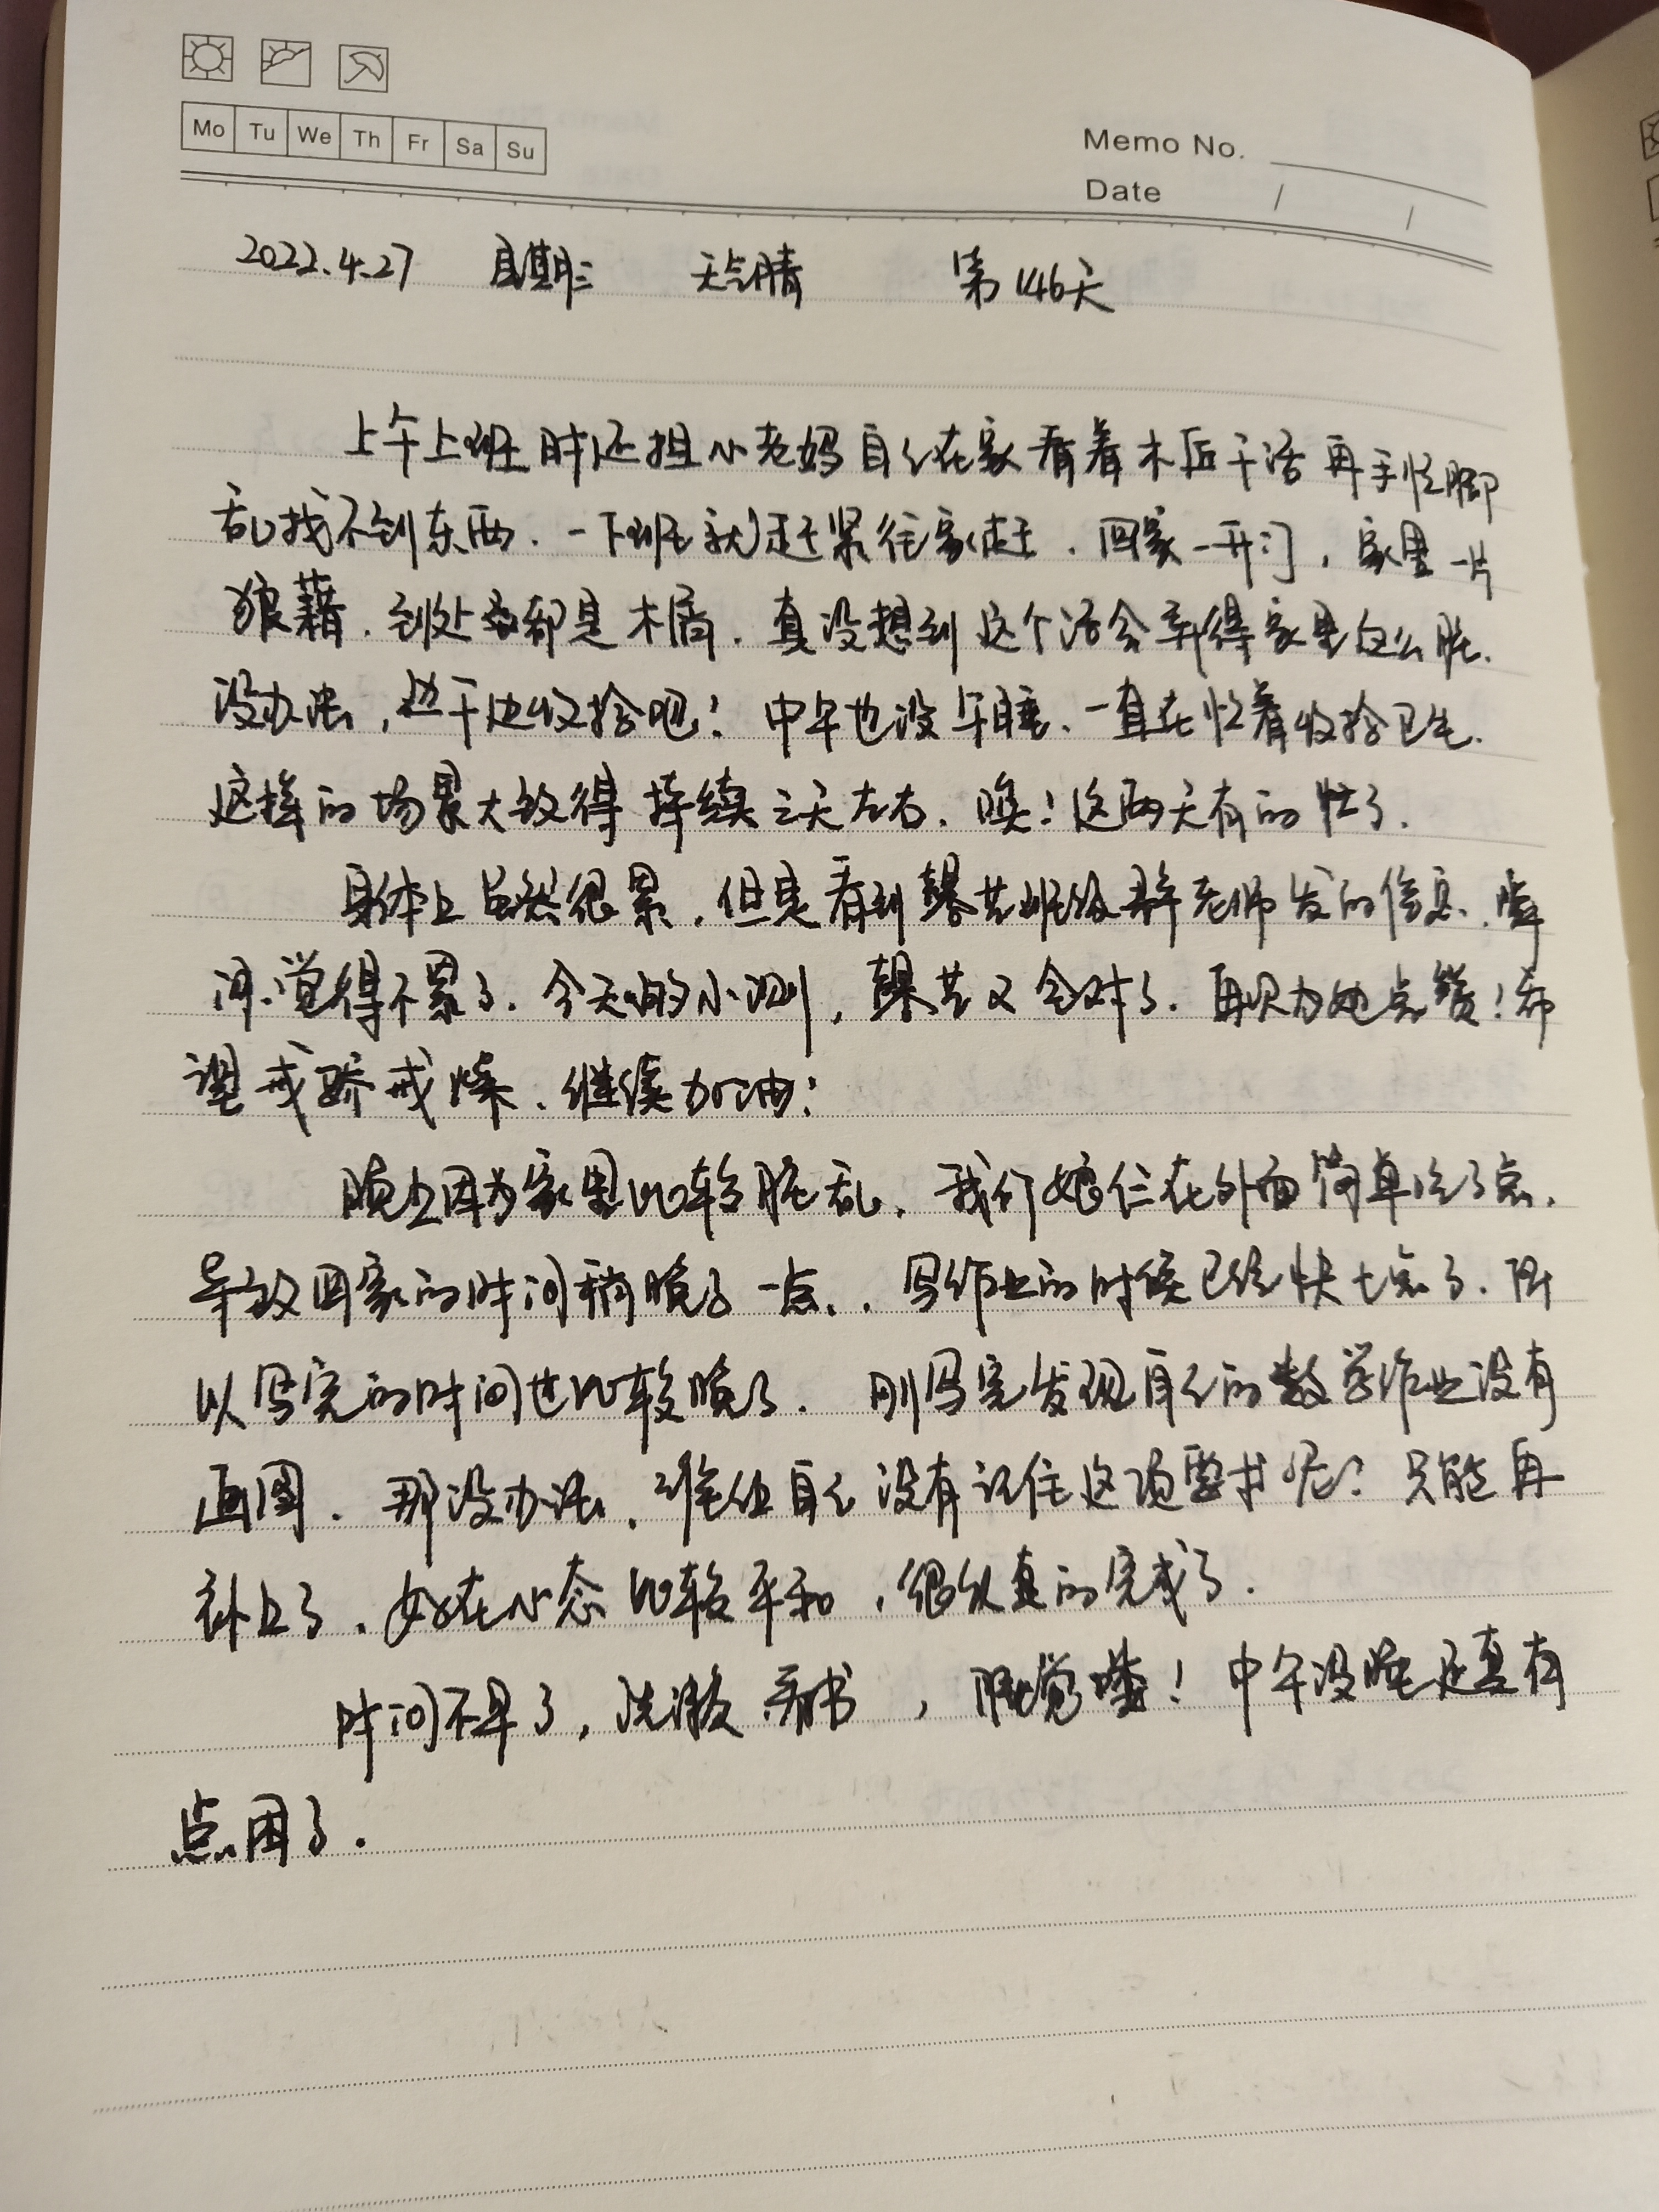 Mo Tu We Th Fr Sa Su
Memo No.
Date / /
2022.4.27 星期三 天气晴 第146天
上午上班时还担心老妈自己在家看着木匠干活再手忙脚
乱找不到东西.一下班就赶紧往家赶.回家一开门,家里一片
狼藉.到处都是木屑.真没想到这个活会弄得家里这么脏.
没办法,边干边收拾吧!中午也没午睡、一直在忙着收拾卫生.
这样的场景大致得持续三天左右.唉!这两天有的忙了.
身体上虽然很累.但是看到馨艺班级群老师发的信息.瞬
间觉得不累了.今天的小测,馨艺又全对了.再次为她点赞!希
望戒骄戒燥.继续加油!
晚上因为家里比较脏乱.我们娘仨在外面简单吃了点.
导致回家的时间稍晚了一点..写作业的时候已经快七点了.所
以写完的时间也比较晚了.刚写完发现自己的数学作业没有
画图.那没办法.谁让自己没有记住这项要求呢?只能再
补上了.好在心态比较平和,很认真的完成了.
时间不早了,洗漱看书,睡觉喽!中午没睡还真有
点困了.